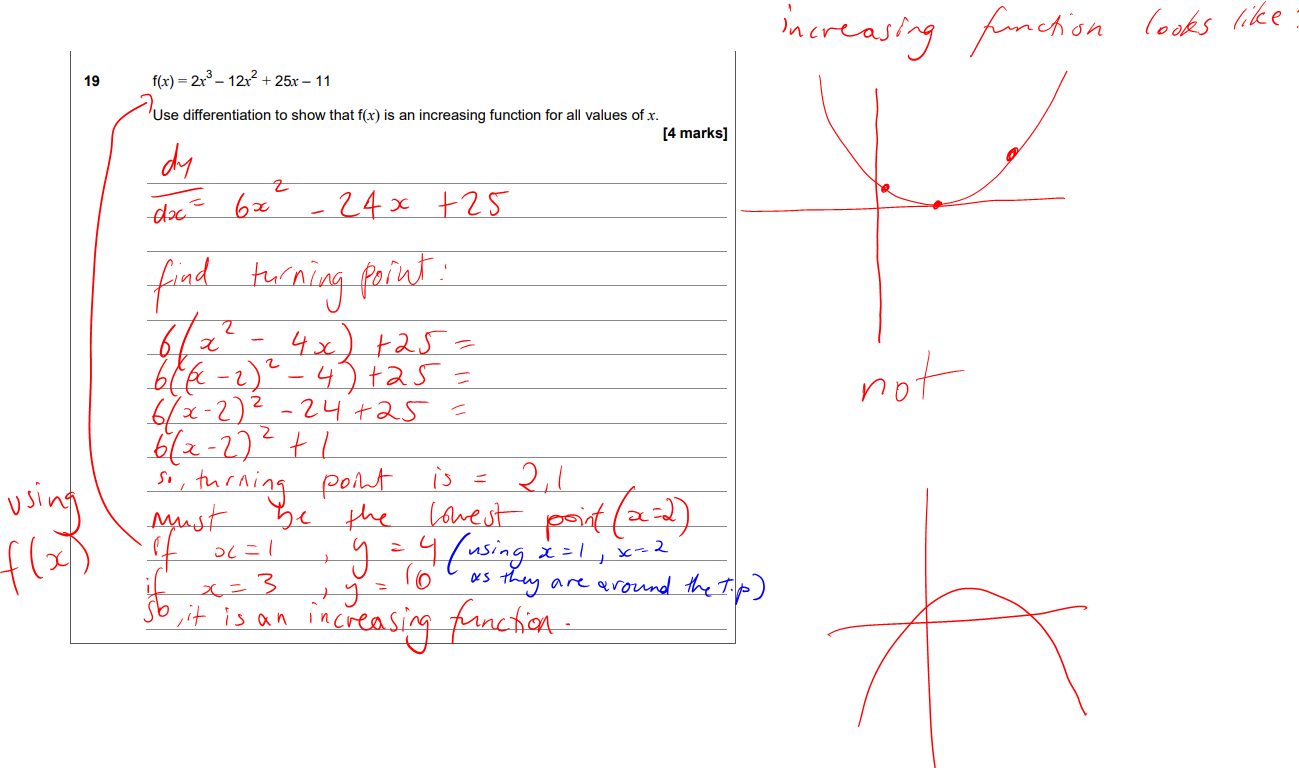 increasing function looks like:
19 f(x) = 2x³ – 12x² + 25x – 11
Use differentiation to show that f(x) is an increasing function for all values of x.
[4 marks]
dy/dx = 6x² - 24x + 25
find turning point:
6(x² - 4x) + 25 =
6((x - 2)² - 4) + 25 =
6(x-2)² - 24 + 25 =
6(x-2)² + 1
so, turning point is = 2,1
must be the lowest point (x=2)
if x=1, y = 4 (using x=1, x=2
if x = 3, y = 10 as they are around the T.p)
so, it is an increasing function.
using
f(x)
not